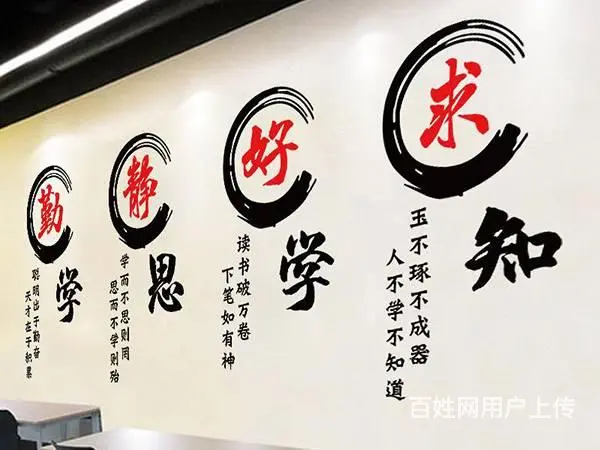 勤学
聪明出于勤奋
天才在于积累
静思
学而不思则罔
思而不学则殆
好学
读书破万卷
下笔如有神
求知
玉不琢不成器
人不学不知道
百姓网用户上传